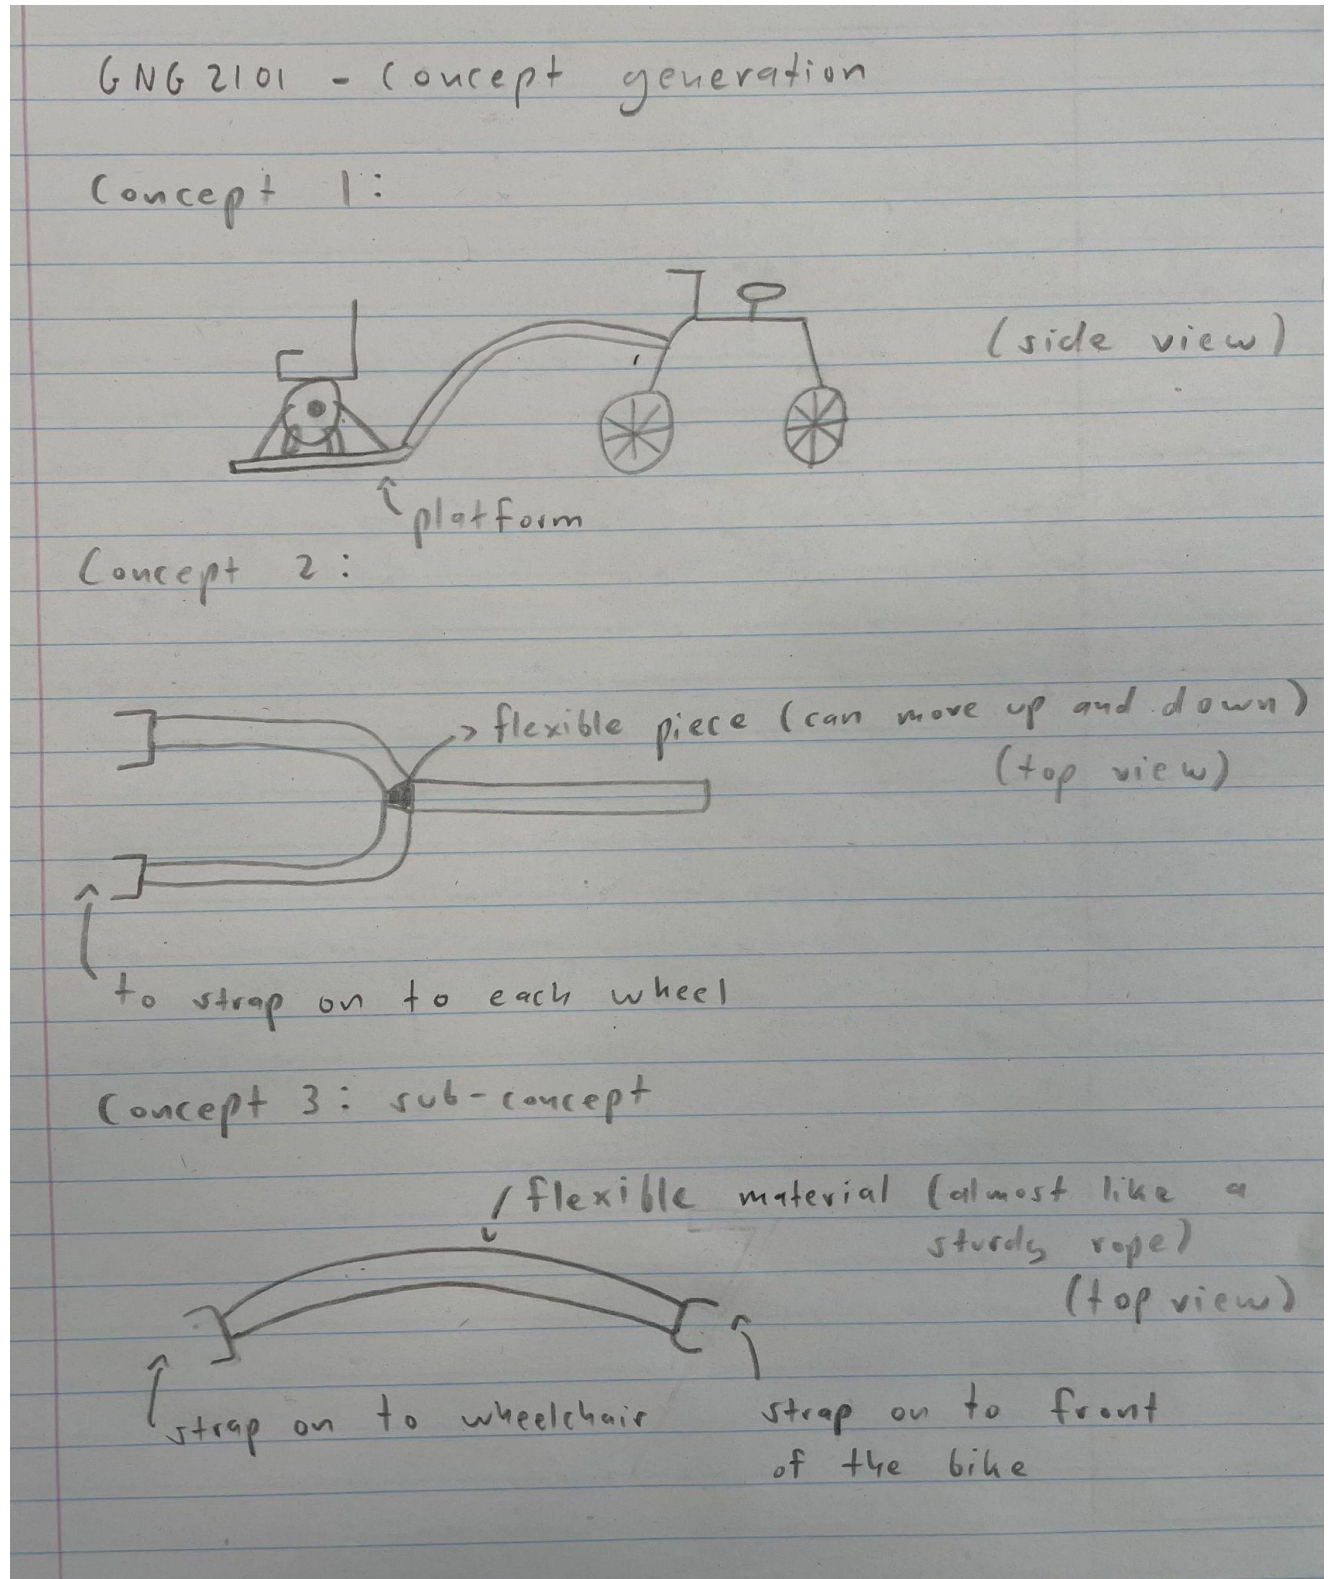 GNG 2101 - Concept generation
Concept 1:
(side view)
platform
Concept 2:
flexible piece (can move up and down)
(top view)
to strap on to each wheel
Concept 3: sub-concept
flexible material (almost like a
sturdy rope)
(top view)
strap on to wheelchair
strap on to front
of the bike